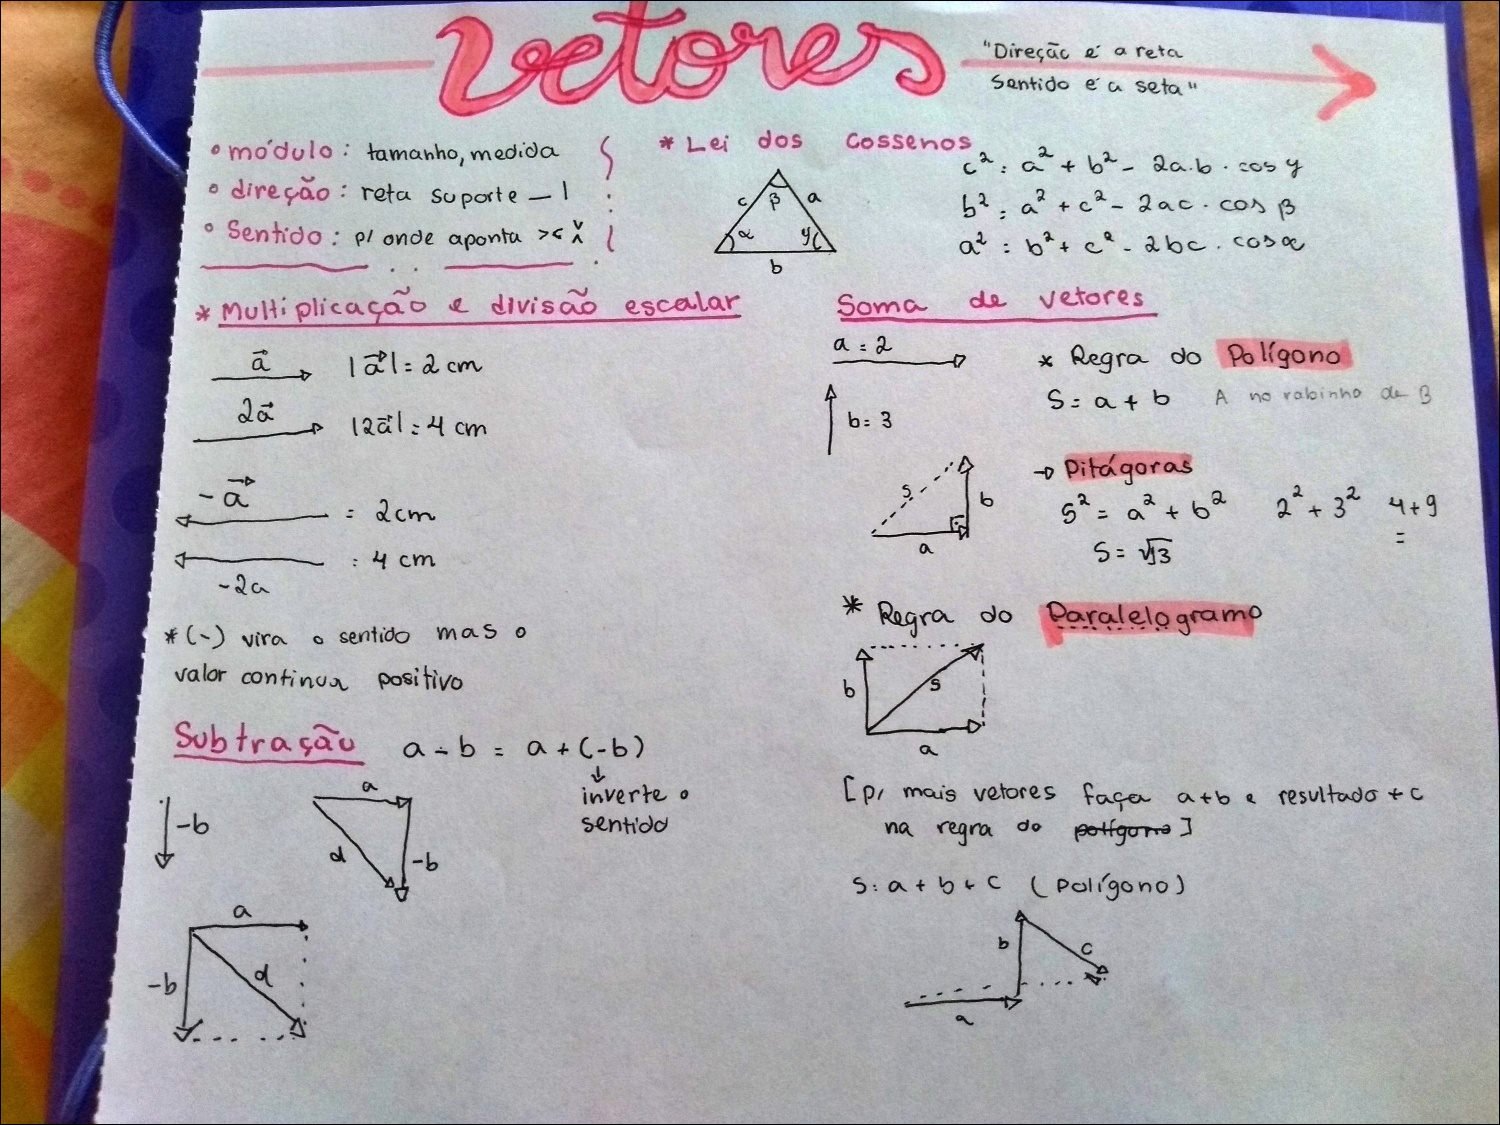 vetores
"Direção é a reta
Sentido é a seta"
• módulo: tamanho, medida
• direção: reta suporte — |
• Sentido: p/ onde aponta > < v ^
* Lei dos Cossenos
c β a
α y
b
c² = a² + b² - 2a.b . cos y
b² = a² + c² - 2ac . cos β
a² = b² + c² - 2bc . cos α
* Multiplicação e divisão escalar
a⃗ |a⃗| = 2 cm
2a⃗ |2a⃗| = 4 cm
-a⃗ = 2cm
= 4 cm
-2a
* (-) vira o sentido mas o
valor continua positivo
Subtração a - b = a + (-b)
↓
inverte o
sentido
-b
a
d -b
a
-b d
Soma de vetores
a = 2
b = 3
* Regra do Polígono
S = a + b A no rabinho de B
s b
a
→ Pitágoras
S² = a² + b² 2² + 3² 4+9
=
S = √13
* Regra do Paralelogramo
b s
a
[p/ mais vetores faça a+b e resultado + c
na regra do polígono]
S = a + b + c (polígono)
b c
a